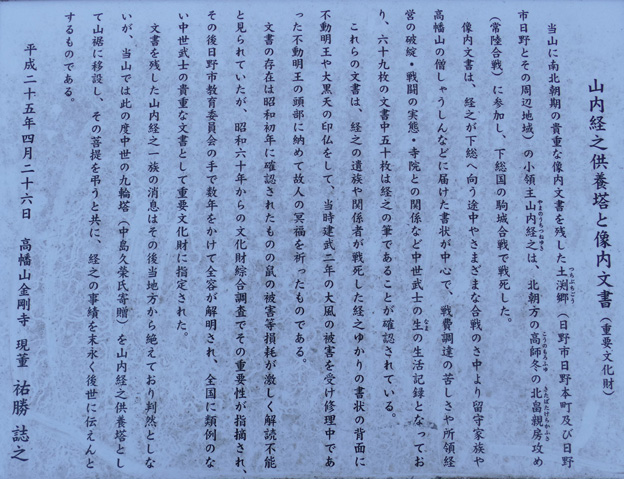 山内経之供養塔と像内文書(重要文化財)
当山に南北朝期の貴重な像内文書を残した土渕郷(日野市日野本町及び日野
市日野とその周辺地域)の小領主山内経之は、北朝方の高師冬の北畠親房攻め
(常陸合戦)に参加し、下総国の駒城合戦で戦死した。
像内文書は、経之が下総へ向う途中やさまざまな合戦のさ中より留守家族や
高幡山の僧しゃうしんなどに届けた書状が中心で、戦費調達の苦しさや所領経
営の破綻・戦闘の実態・寺院との関係など中世武士の生の生活記録となってお
り、六十九枚の文書中五十枚は経之の筆であることが確認されている。
これらの文書は、経之の遺族や関係者が戦死した経之ゆかりの書状の背面に
不動明王や大黒天の印仏をして、当時建武二年の大風の被害を受け修理中であ
った不動明王の頭部に納めて故人の冥福を祈ったものである。
文書の存在は昭和初年に確認されたものの鼠の被害等損耗が激しく解読不能
と見られていたが、昭和六十年からの文化財綜合調査でその重要性が指摘され、
その後日野市教育委員会の手で数年をかけて全容が解明され、全国に類例のな
い中世武士の貴重な文書として重要文化財に指定された。
文書を残した山内経之一族の消息はその後当地方から絶えており判然としな
いが、当山では此の度中世の九輪塔(中島久榮氏寄贈)を山内経之供養塔とし
て山裾に移設し、その菩提を弔うと共に、経之の事績を末永く後世に伝えんと
するものである。
平成二十五年四月二十六日 高幡山金剛寺 現董 祐勝 誌之